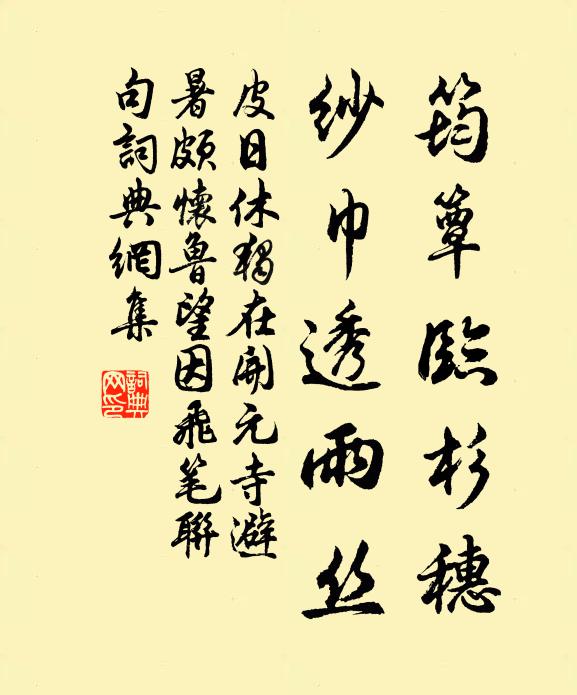 筠簟臨杉穗
纱巾透雨丝
皮日休獨在開元寺避
暑頗懷魯望因飛笔聯
句詞典網集
詞典
网印